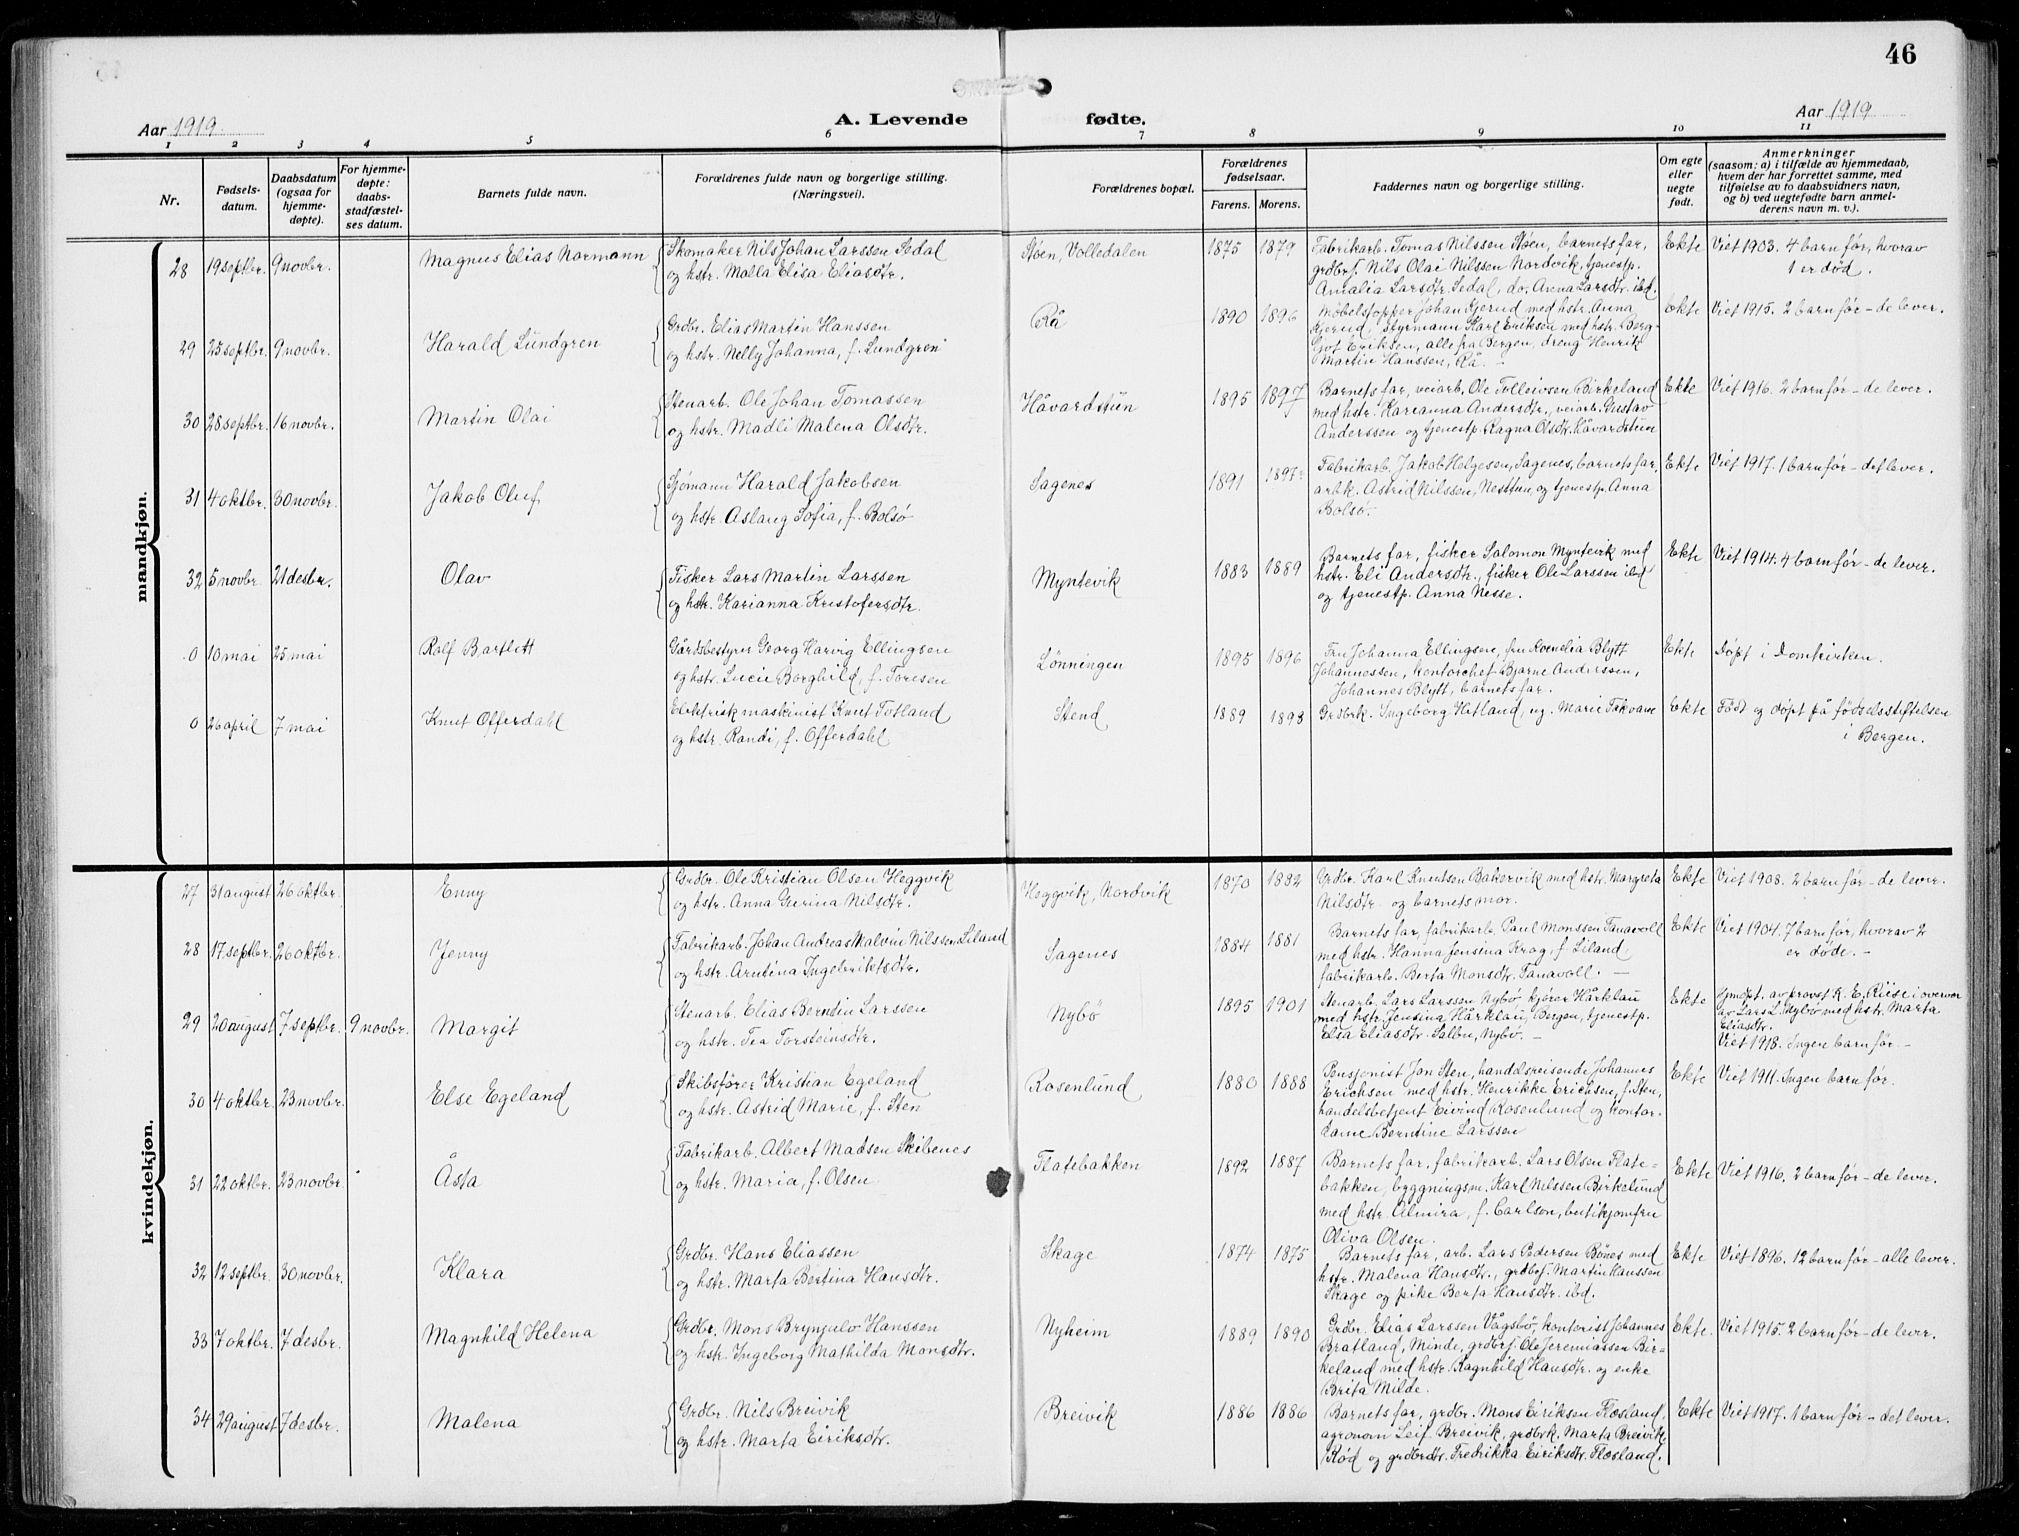 46
Aar 1919.
A. Levende fødte.
Aar 1919
1 2 3 4 5 6 7 8 9 10 11
Nr.
Fødsels-
datum.
Daabsdatum
(ogsaa for
hjemme-
døpte).
For hjemme-
døpte:
daabs-
stadfæstel-
ses datum.
Barnets fulde navn.
Forældrenes fulde navn og borgerlige stilling.
(Næringsvei).
Forældrenes bopæl.
Forældrenes
fødselsaar.
Farens. Morens.
Faddernes navn og borgerlige stilling.
Om egte
eller
uegte
født.
Anmerkninger
(saasom: a) i tilfælde av hjemmedaab,
hvem der har forrettet samme, med
tilføielse av to daabsvidners navn,
og b) ved uegtefødte barn anmel-
derens navn m. v.).
mandkjøn.
28 19 septbr. 9 novbr. Magnus Elias Normann
Skomaker Nils Johan Larssen Sedal
og hstr. Malla Elisa Eliasdtr.
Støen, Volledalen 1875 1879
Fabrikarb. Tomas Nilssen Støen, barnets far,
grdbrf. Nils Olai Nilssen Nordvik, tjenestp.
Amalia Larsdtr. Sedal, do. Anna Larsdtr. ibd.
Ekte Viet 1903. 4 barn før, hvorav
1 er død.
29 25 septbr. 9 novbr. Harald Lundgren
Grdbr. Elias Martin Hanssen
og hstr. Nelly Johanna, f. Lundgren
Rå 1890 1896
Møbelstopper Johan Gjerud med hstr. Anna
Gjerud, styrmann Karl Eriksen med hstr. Berg-
ljot Eriksen, alle fra Bergen, dreng Henrik
Martin Hanssen, Rå. -
Ekte Viet 1915. 2 barn før - de lever.
30 28 septbr. 16 novbr. Martin Olai
Stenarb. Ole Johan Tomassen
og hstr. Madli Malena Olsdtr.
Håvardstun 1895 1897
Barnets far, veiarb. Ole Tolleivsen Birkeland
med hstr. Karianna Andersdtr., veiarb. Gustav
Anderssen og tjenestp. Ragna Olsdtr. Håvardstun
Ekte Viet 1916. 2 barn før - de lever.
31 4 oktbr. 30 novbr. Jakob Oluf
Sjømann Harald Jakobsen
og hstr. Aslaug Sofia, f. Bolsø
Sagenes 1891 1897
Fabrikarb. Jakob Helgesen, Sagenes, barnets far,
arbk. Astrid Nilssen, Nesttun, og tjenestp. Anna
Bolsø.
Ekte Viet 1917. 1 barn før - det lever.
32 5 novbr. 21 desbr. Olav
Fisker Lars Martin Larssen
og hstr. Karianna Kristofersdtr.
Myntevik 1883 1889
Barnets far, fisker Salomon Myntevik med
hstr. Eli Andersdtr., fisker Ole Larssen ibd
og tjenestp. Anna Nesse.
Ekte Viet 1914. 4 barn før - de lever.
0 10 mai 25 mai Rolf Bartlett
Gårdsbestyrer Georg Harvig Ellingsen
og hstr. Lucie Borghild, f. Toresen
Lønningen 1895 1896
Fru Johanna Ellingsen, fru Kornelia Blytt
Johannessen, kontorchef Bjarne Anderssen,
Johannes Blytt, barnets far.
Ekte Døpt i Domkirken.
0 26 april 7 mai Knut Offerdahl
Elektrisk maskinist Knut Totland
og hstr. Randi, f. Offerdahl
Stend 1889 1893
Grdbrk. Ingeborg Hitland, ug. Marie Takvam
Ekte Født og døpt på fødselsstiftelsen
i Bergen.
kvindekjøn.
27 31 august 26 oktbr. Enny
Grdbr. Ole Kristian Olsen Heggvik
og hstr. Anna Gurina Nilsdtr.
Heggvik, Nordvik 1870 1882
Grdbr. Karl Knutsen Bakervik med hstr. Margreta
Nilsdtr. og barnets mor.
Ekte Viet 1908. 2 barn før - de lever.
28 17 septbr. 26 oktbr. Jenny
Fabrikarb. Johan Andreas Malvin Nilssen Liland
og hstr. Arntina Ingebriktsdtr.
Sagenes 1884 1881
Barnets far, fabrikarb. Paul Monssen Tanavoll
med hstr. Hanna Jensina Krag, f. Liland,
fabrikarb. Berta Monsdtr. Tanavoll. -
Ekte Viet 1904. 7 barn før, hvorav 2
er døde. -
29 20 august 7 septbr. 9 novbr. Margit
Stenarb. Elias Berntin Larssen
og hstr. Tea Torsteinsdtr.
Nybø 1895 1901
Stenarb. Lars Larssen Nybø, kjører Hårklau
med hstr. Jensina Hårklau, Bergen, tjenestp.
Elsa Eliasdtr. Sælbu, Nybø. -
Ekte Hjmdpt. av provst K. E. Riise i overvær
av Lars L. Nybø med hstr. Marta
Eliasdtr.
Viet 1918. Ingen barn før -
30 4 oktbr. 23 novbr. Else Egeland
Skibsfører Kristian Egeland
og hstr. Astrid Marie, f. Sten
Rosenlund 1880 1888
Pensjonist Jon Sten, handelsreisende Johannes
Erichsen med hstr. Henrikke Erichsen, f. Sten,
handelsbetjent Eivind Rosenlund og kontor-
dame Berntine Larssen
Ekte Viet 1911. Ingen barn før.
31 22 oktbr. 23 novbr. Åsta
Fabrikarb. Albert Madsen Skibenes
og hstr. Maria, f. Olsen
Flatebakken 1892 1887
Barnets far, fabrikarb. Lars Olsen Flate-
bakken, byggningsm. Karl Nilssen Birkelund
med hstr. Almira, f. Carlson, butikjomfru
Oliva Olsen.
Ekte Viet 1916. 2 barn før - de lever.
32 12 septbr. 30 novbr. Klara
Grdbr. Hans Eliassen
og hstr. Marta Bertina Hansdtr.
Skage 1874 1875
Barnets far, arb. Lars Pedersen Bønes med
hstr. Malena Hansdtr., grdbrf. Martin Hanssen
Skage og pike Berta Hansdtr. ibd.
Ekte Viet 1896. 12 barn før - alle lever.
33 7 oktbr. 7 desbr. Magnhild Helena
Grdbr. Mons Brynjulv Hanssen
og hstr. Ingeborg Mathilda Monsdtr.
Nyheim 1889 1890
Grdbr. Elias Larssen Vågsbø, kontorist Johannes
Bratland, Minde, grdbrf. Ole Jeremiassen Bir-
keland med hstr. Ragnhild Hansdtr. og enke
Brita Milde.
Ekte. Viet 1915. 2 barn før - de lever.
34 29 august 7 desbr. Malena
Grdbr. Nils Breivik
og hstr. Marta Eiriksdtr.
Breivik 1886 1886
Barnets far, grdbr. Mons Eiriksen Flesland,
agronom Leif Breivik, grdbrk. Marta Breivik,
Rød og grdbrdtr. Fredrikka Eiriksdtr. Flesland.
Ekte Viet 1917. 1 barn før - det lever.